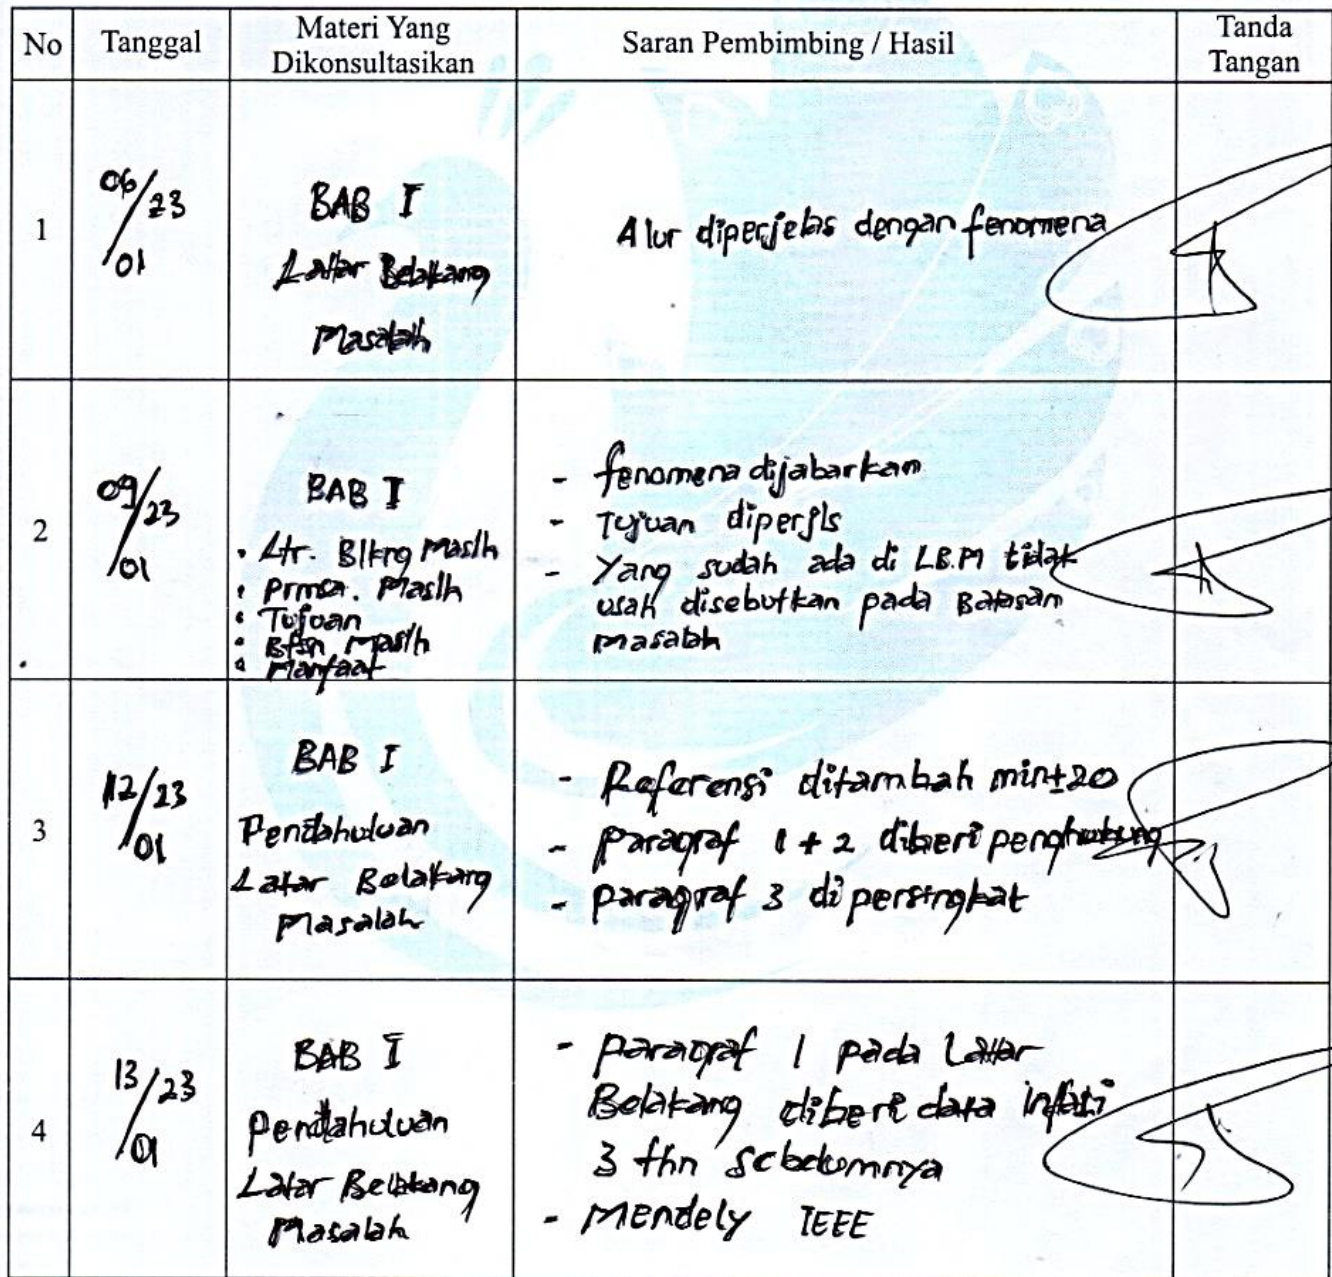 No
Tanggal
Materi Yang
Dikonsultasikan
Saran Pembimbing / Hasil
Tanda
Tangan
1
06/23
01
BAB I
Latar Belakang
Masalah
Alur diperjelas dengan fenomena
2
09/23
01
BAB I
• Ltr. Blkng Maslh
• Prmsa. Maslh
• Tujuan
• Btsn Maslh
• Manfaat
- fenomena dijabarkan
- Tujuan diperjls
- Yang sudah ada di L.B.M tidak
usah disebutkan pada Batasan
masalah
3
12/23
01
BAB I
Pendahuluan
Latar Belakang
Masalah
- Referensi ditambah min±20
- paragraf 1 + 2 diberi penghubung
- paragraf 3 dipersingkat
4
13/23
01
BAB I
Pendahuluan
Latar Belakang
Masalah
- paragraf 1 pada Latar
Belakang diberi data inflasi
3 thn sebelumnya
- Mendely IEEE